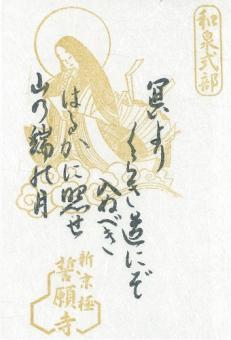 和泉式部
冥より
くらき道にぞ
入ぬべき
はるかに照せ
山の端の月
新京極
誓願寺